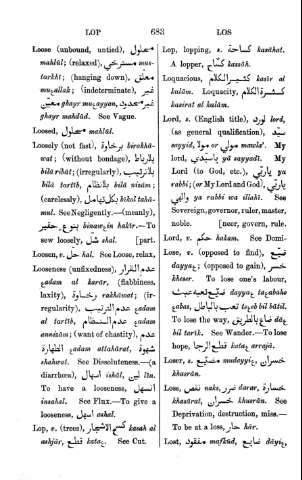 LOP 683 LOS
Loose (unbound, untied), محلول
mahlūl; (relaxed), مسترخي mus-
tarkhī; (hanging down), معلق
muʿallak; (indeterminate), غير
معين ghayr muʿayyan, غير محدود
ghayr mahdūd. See Vague.
Loosed, محلول mahlūl.
Loosely (not fast), برخاوة birakhā-
wat; (without bondage), بلا رباط
bilā ribāt; (irregularly), بلا ترتيب
bilā tartīb, بلا نظام bilā nizām;
(carelessly), بكل تهامل bikol tahā-
mul. See Negligently.—(meanly),
بنوع حقير binawʿin hakīr.—To
sew loosely, شل shal. [part.
Loosen, v. حل hal. See Loose, relax,
Looseness (unfixedness), عدم القرار
ʿadam al karār, (flabbiness,
laxity), رخاوة rakhāwat; (ir-
regularity), عدم الترتيب ʿadam
al tartīb, عدم النظام ʿadam
annizām; (want of chastity), عدم
الطهارة ʿadam attahārat, شهوة
shahwat. See Dissoluteness.—(a
diarrhœa), اسهال ishāl, لين līn.
To have a looseness, انسهل
insahal. See Flux.—To give a
looseness, اسهل ashal.
Lop, v. (trees), كسح الاشجار kasah al
ashjār, قطع kataʿ. See Cut.
Lop, lopping, s. كساحة kasāhat.
A lopper, كساح kassāh.
Loquacious, كثير الكلام kasīr al
kalām. Loquacity, كثرة الكلام
kasirat al kalām.
Lord, s. (English title), لورد lord,
(as general qualification), سيد
sayyid, مولى or مولا mawla'. My
lord, يا سيدي yā sayyadī. My
Lord (to God, etc.), يا ربي ya
rabbi; (or My Lord and God), يا ربي
والهي ya rabbi wa illahī. See
Sovereign, governor, ruler, master,
noble. [neer, govern, rule.
Lord, v. حكم hakam. See Domi-
Lose, v. (opposed to find), ضيع
dayyaʿ; (opposed to gain), خسر
kheser. To lose one's labour,
ضيع تعبه عبث dayyaʿ taʿabaho
ʿabas, تعب بالباطل taʿeb bil bātil.
To lose the way, ضاع بالطريق daʿ
bil tarīk. See Wander.—To lose
hope, قطع الرجا kataʿ arrajā.
Loser, s. مضيع mudayyiʿ, خسران
khusrān.
Loss, نقص naks, ضرر darar, خسارة
khasārat, خسران khusrān. See
Deprivation, destruction, miss.—
To be at a loss, حار hār.
Lost, مفقود mafkūd, ضايع dāyiʿ,